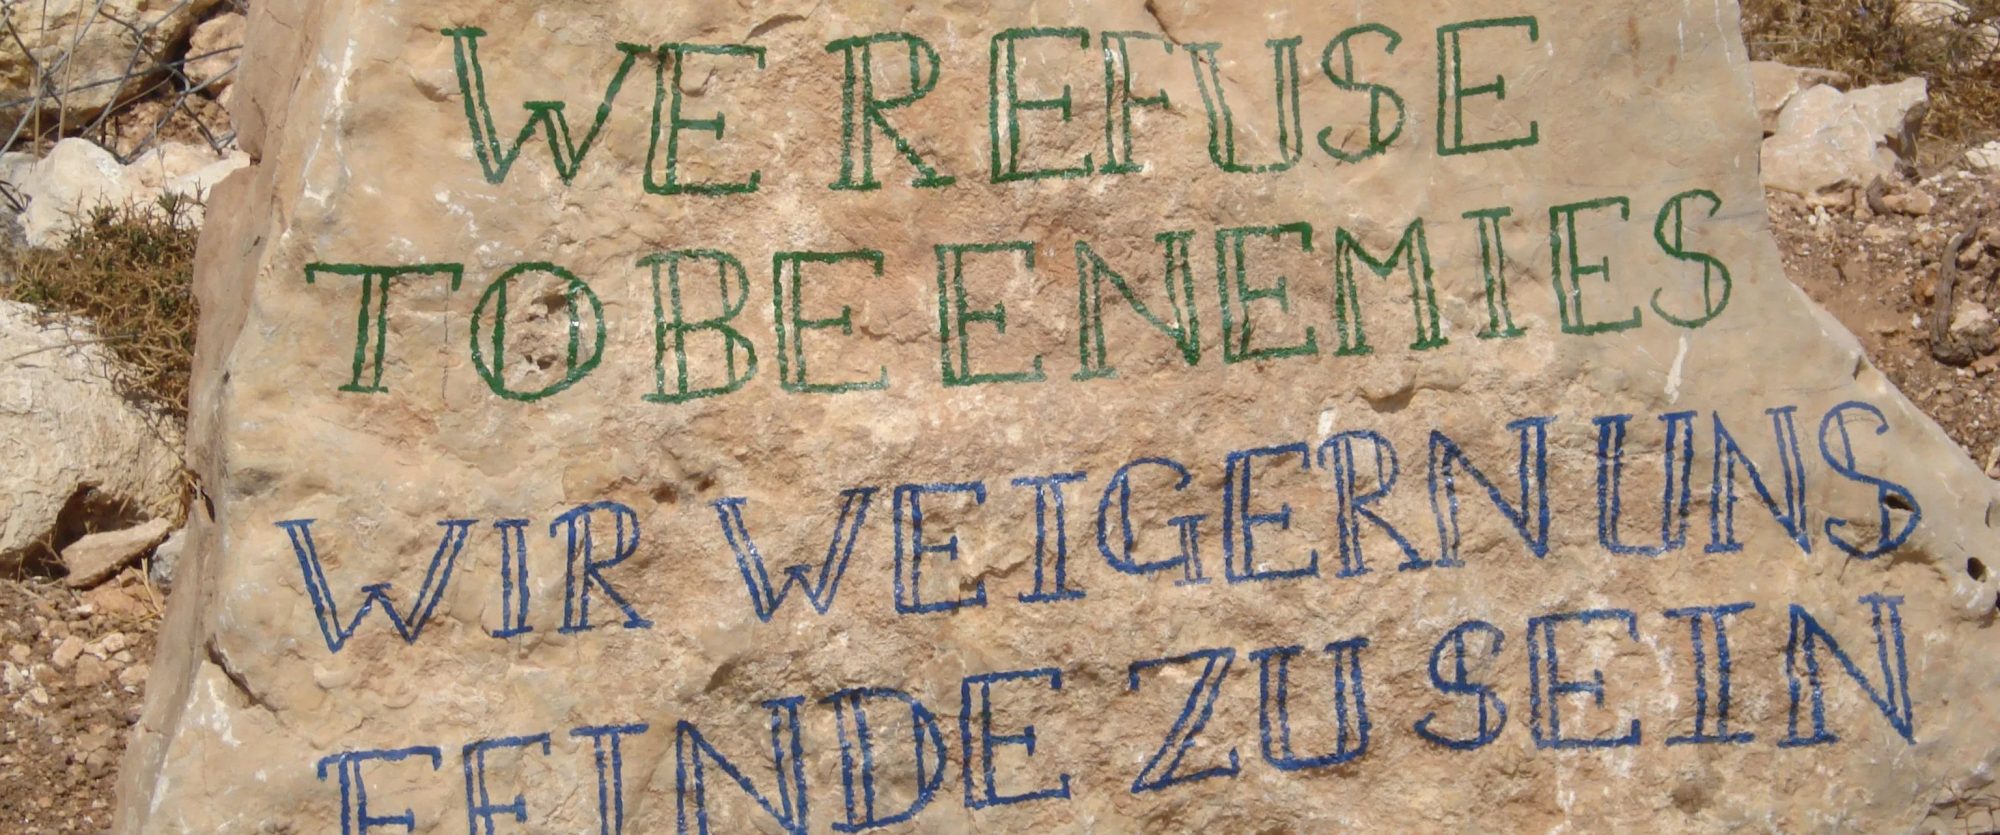 WE REFUSE
TO BE ENEMIES
WIR WEIGERN UNS
FEINDE ZU SEIN